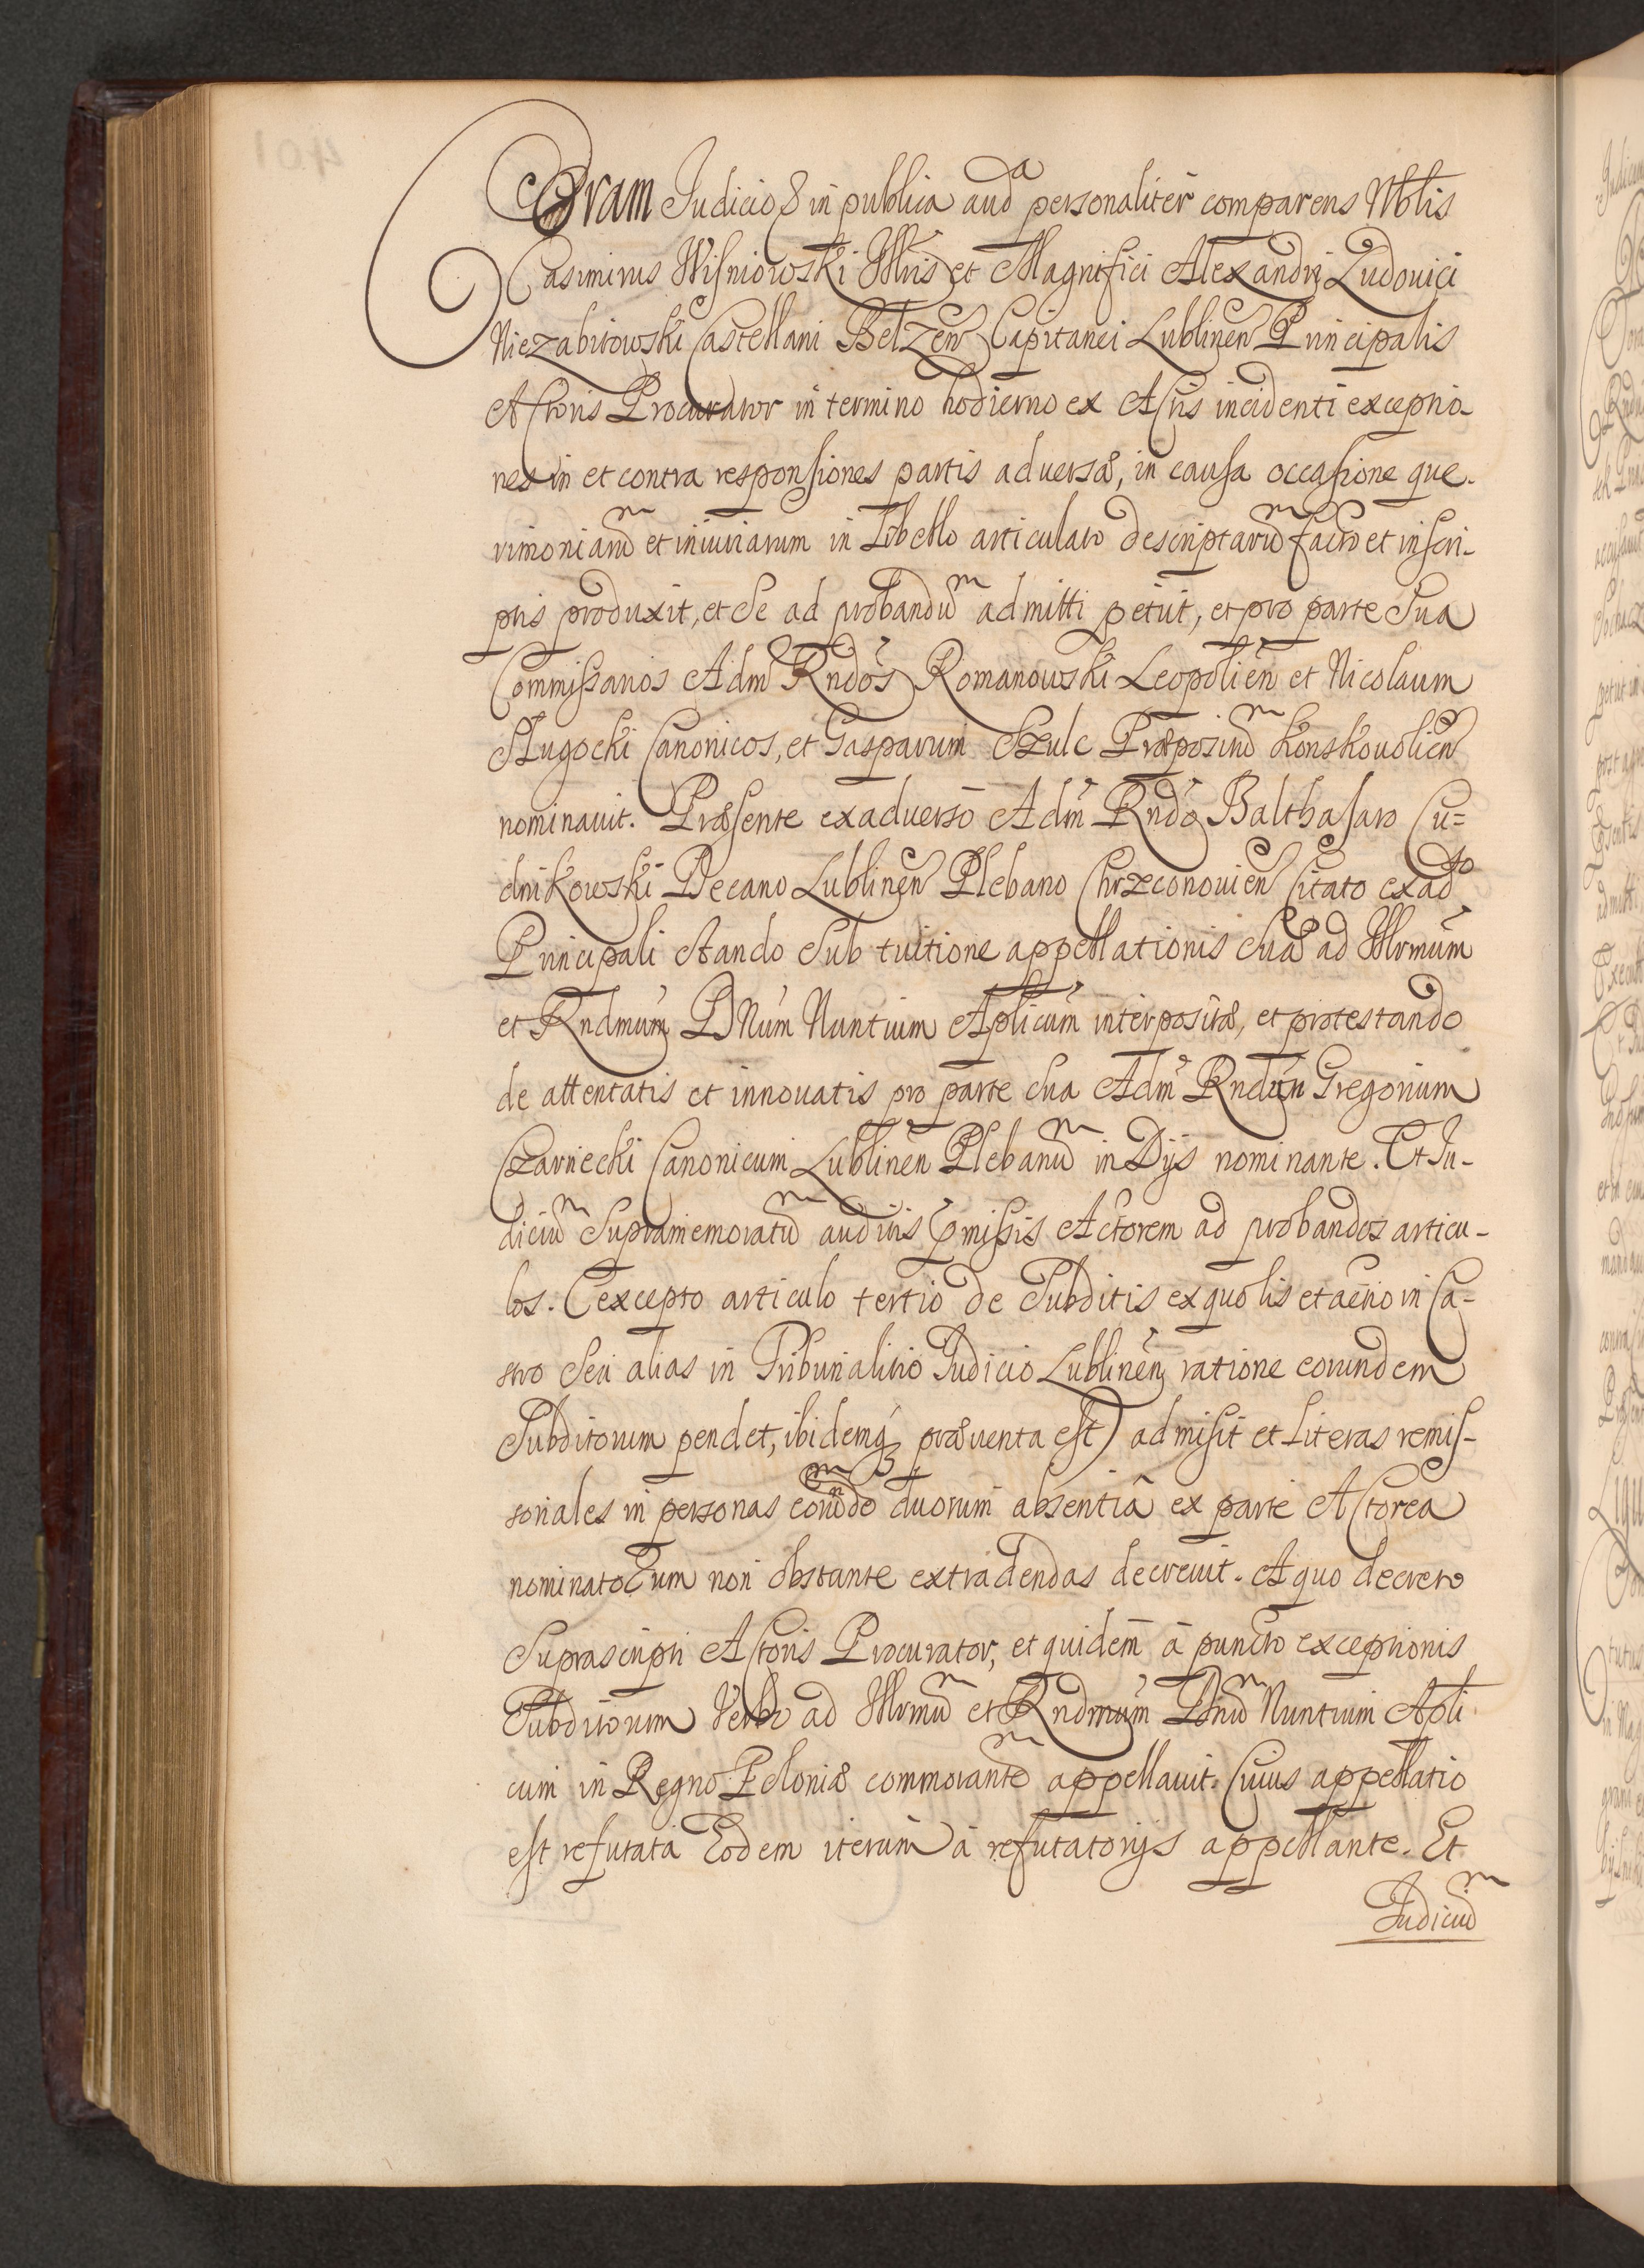 Coram Judicio & in publica aud^a personaliter comparens Nblis
Casimirus Wiśniowski Illris et Magnifici Alexandri Ludovici
Niezabitowski Castellani Belzen Capitanei Lublinen Principalis
Actoris Procurator in termino hodierno ex Actis incidenti exceptio-
nes in et contra responsiones partis adversæ, in causa occasione que-
rimoniarũ et iniuriarum in Libello articulato descriptarũ facto et inscri-
ptis produxit, et Se ad probandũ admitti petiit, et pro parte Sua
Commissarios Adm Rndos Romanowski Leopolien et Nicolaum
Slugocki Canonicos, et Gasparum Szulc Præpositũ Konskovolien
nominavit. Præsente ex adverso Adm Rndo Balthasaro Cu=
dnikowski Decano Lublinen Plebano Chrzconovien Citato ex ad^so
Principali Stando Sub tuitione appellationis Suæ ad Illrmum
et Rndmum DNum Nuntium Aplicum interpositæ, et protestando
de attentatis et innovatis pro parte Sua Adm Rndum Gregorium
Czarnecki Canonicum Lublinen Plebanũ in Dys nominante. Et Ju-
diciũ Supramemoratũ auditis pmissis Actorem ad probandos articu-
los. (excepto articulo tertio de Subditis ex quo lis et actio in Ca-
stro Seu alias in Tribunalitio Judicio Lublinen ratione eorundem
Subditorum pendet, ibidemq3 præventa est) admisit et Literas remis-
soriales in personas eorũde duorum absentiâ ex parte Actorea
nominatorum non obstante extradendas decrevit. A quo decreto
Suprascripti Actoris Procurator, et quidem à puncto exceptionis
Subditorum Verbo ad Illrmũ et Rndmum Dnũ Nuntium Apli
cum in Regno Poloniæ commorantẽ appellavit. Cuius appellatio
est refutata Eodem iterum à refutatorijs appellante. Et
Judiciũ